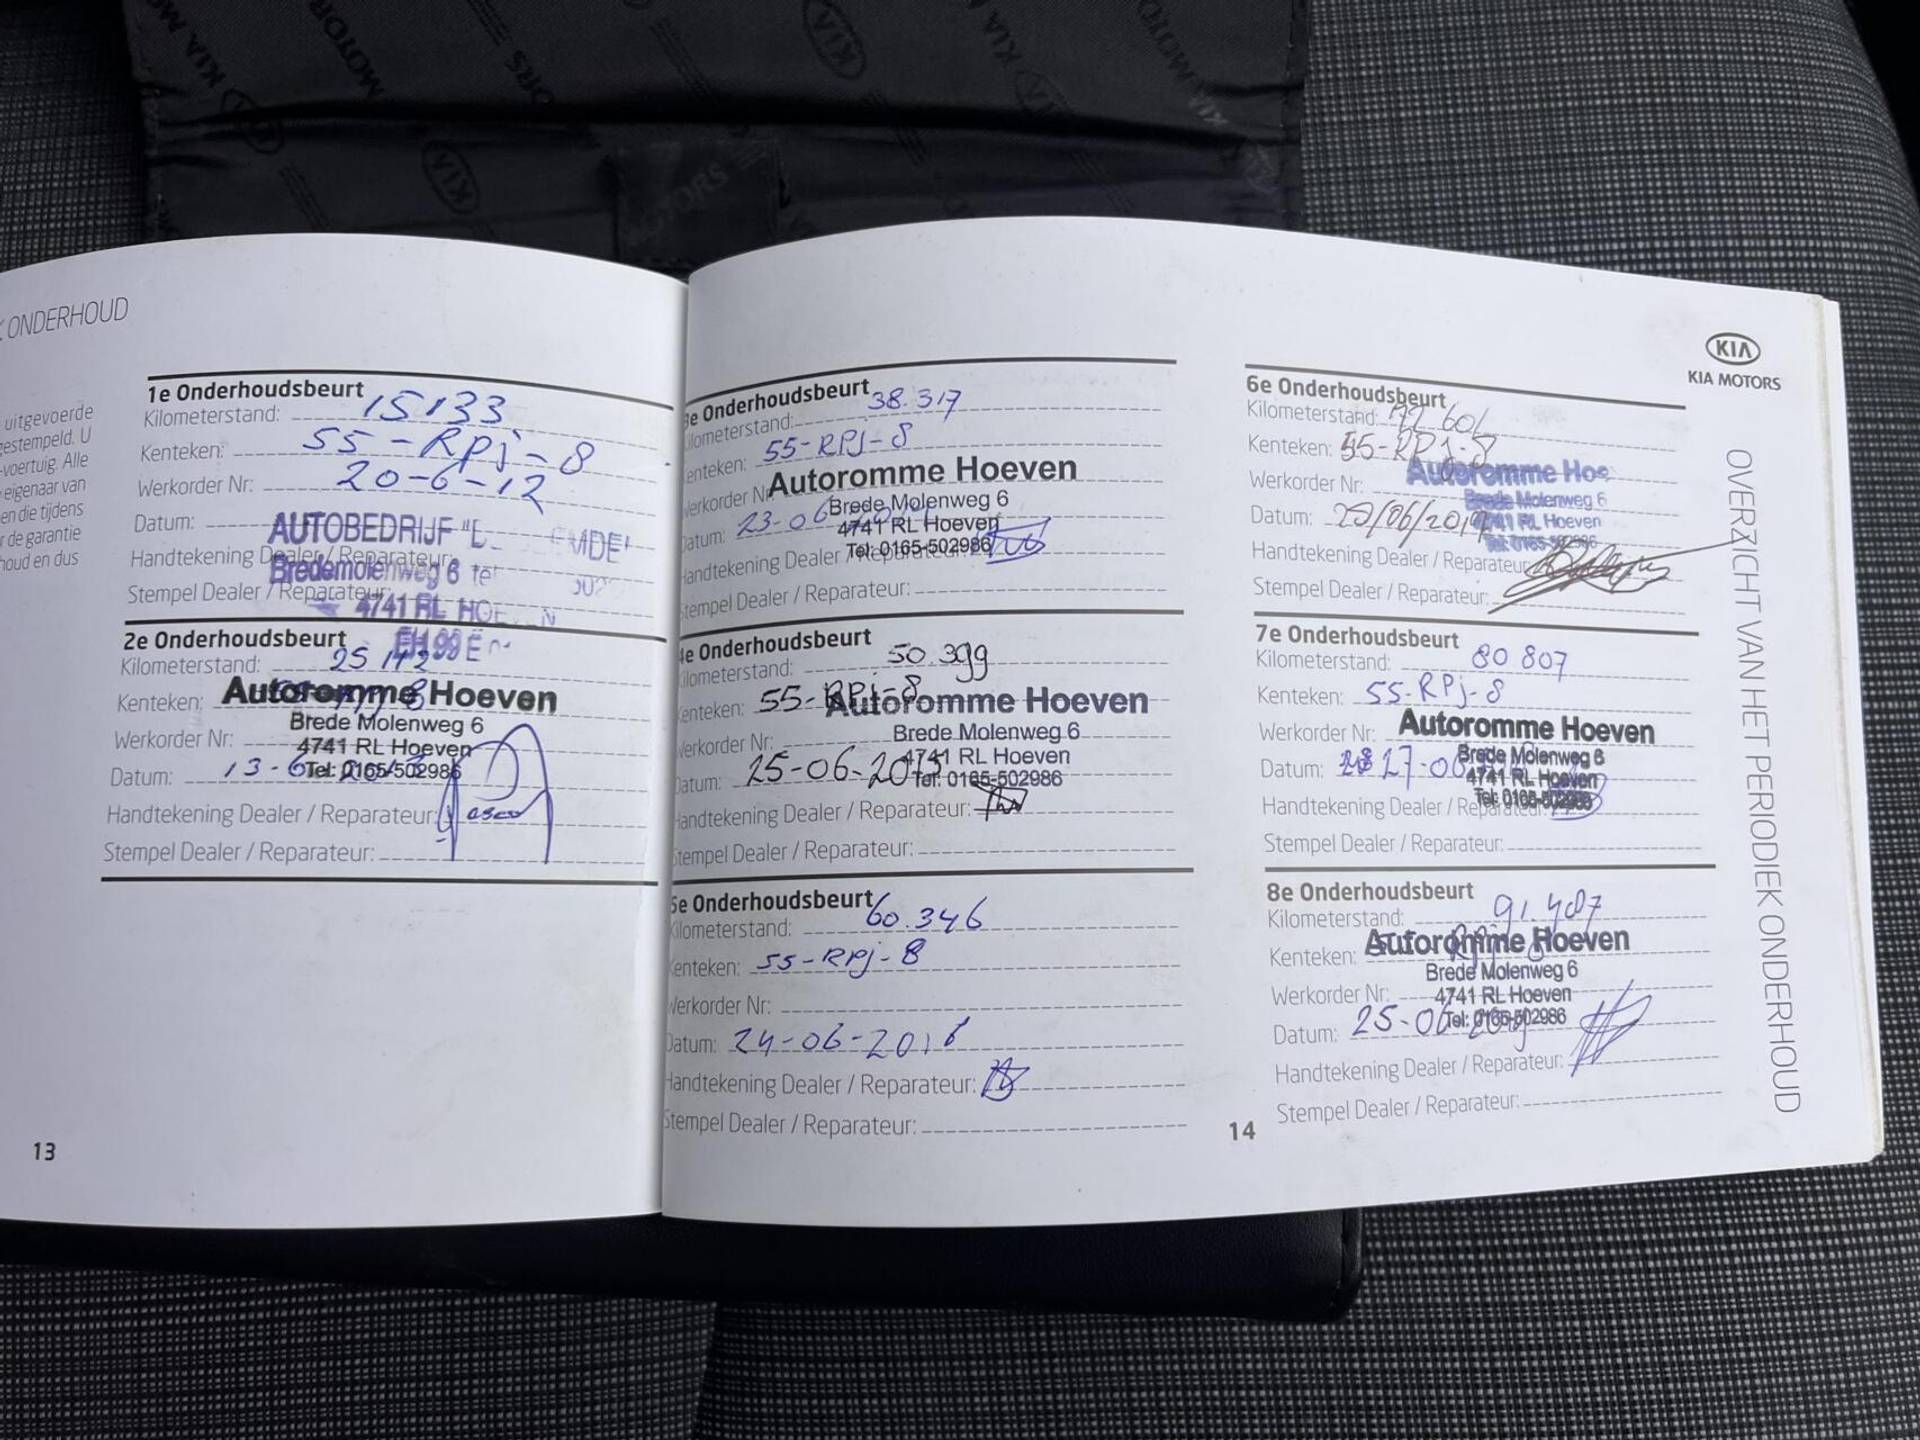 ONDERHOUD
uitgevoerde
gestempeld. U
voertuig. Alle
eigenaar van
en die tijdens
r de garantie
houd en dus
1e Onderhoudsbeurt
Kilometerstand: 15133
Kenteken: 55-RPj-8
Werkorder Nr: 20-6-12
Datum:
AUTOBEDRIJF
Handtekening Dealer / Reparateur:
Bredemolenweg 6
Stempel Dealer / Reparateur:
4741 RL
2e Onderhoudsbeurt
Kilometerstand:
Kenteken:
Autoromme Hoeven
Brede Molenweg 6
Werkorder Nr:
4741 RL Hoeven
Datum: 13-6-
Tel: 0165-502986
Handtekening Dealer / Reparateur:
Stempel Dealer / Reparateur:
13
3e Onderhoudsbeurt
Kilometerstand: 38.317
Kenteken: 55-RPj-8
Autoromme Hoeven
Werkorder Nr
Brede Molenweg 6
Datum: 23-06
4741 RL Hoeven
Tel: 0165-502986
Handtekening Dealer / Reparateur:
Stempel Dealer / Reparateur:
4e Onderhoudsbeurt
Kilometerstand: 50.399
Kenteken: 55-RPj-8
Autoromme Hoeven
Brede Molenweg 6
Werkorder Nr:
4741 RL Hoeven
Datum: 25-06-2015
Tel: 0165-502986
Handtekening Dealer / Reparateur:
Stempel Dealer / Reparateur:
5e Onderhoudsbeurt
Kilometerstand: 60.346
Kenteken: 55-RPj-8
Werkorder Nr:
Datum: 24-06-2016
Handtekening Dealer / Reparateur:
Stempel Dealer / Reparateur:
14
KIA
KIA MOTORS
6e Onderhoudsbeurt
Kilometerstand:
Kenteken: 55-RPj-8
Autoromme
Werkorder Nr:
Brede Molenweg 6
Datum:
RL Hoeven
Handtekening Dealer / Reparateur:
Stempel Dealer / Reparateur:
7e Onderhoudsbeurt
Kilometerstand: 80 807
Kenteken: 55-RPj-8
Werkorder Nr:
Autoromme Hoeven
Brede Molenweg 6
Datum:
4741 RL Hoeven
Tel: 0165-502986
Handtekening Dealer / Reparateur:
Stempel Dealer / Reparateur:
8e Onderhoudsbeurt
Kilometerstand: 91.407
Kenteken:
Autoromme Hoeven
Brede Molenweg 6
Werkorder Nr:
4741 RL Hoeven
Datum: 25-06
Tel: 0165-502986
Handtekening Dealer / Reparateur:
Stempel Dealer / Reparateur:
OVERZICHT VAN HET PERIODIEK ONDERHOUD